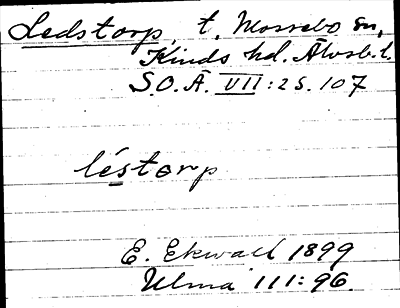 Ledstorp, t. Mossebo sn,
Kinds hd. Älvsb. l.
S.O.Ä. VII: 2 s. 107
léstorp
E. Ekwall 1899
Ulma 111:96.